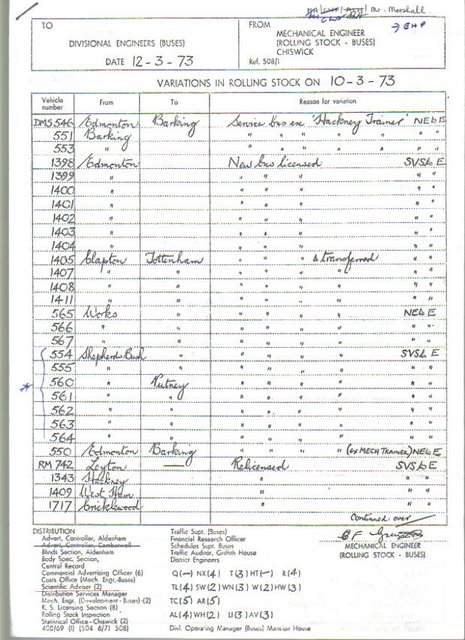 Mr. Marshall
→ EHP
TO
FROM
DIVISIONAL ENGINEERS (BUSES)
MECHANICAL ENGINEER
(ROLLING STOCK - BUSES)
CHISWICK
DATE 12-3-73
Ref. 508/1
VARIATIONS IN ROLLING STOCK ON 10-3-73
Vehicle number From To Reason for variation
DMS 546 Edmonton Barking Service bus ex 'Hackney Trainer' NE&E
551 Barking " " " " " " "
553 " " " " " " " "
1398 Edmonton New bus licensed SVSL E
1399 " " " " " "
1400 " " " " " "
1401 " " " " " "
1402 " " " " " "
1403 " " " " " "
1404 " " " " " "
1405 Clapton Tottenham " " " & transferred " "
1407 " " " " " " " "
1408 " " " " " " " "
1411 " " " " " " " "
565 Works " " " " " NE&E
566 " " " " " " " "
567 " " " " " " " "
554 Shepherds Bush " " " " " SVSL E
555 " " " " " " " "
* 560 " Putney " " " " " "
561 " " " " " " " "
562 " " " " " " " "
563 " " " " " " " "
564 " " " " " " " "
550 Edmonton Barking " " " " (ex MECH TRAINER) NE&E
RM 742 Leyton — Relicensed SVSL E
1343 Hackney " " "
1409 West Ham " " "
1717 Cricklewood " " "
Continued over
MECHANICAL ENGINEER
(ROLLING STOCK - BUSES)
DISTRIBUTION
Advert. Controller, Aldenham
Advert. Controller, Camberwell
Blinds Section, Aldenham
Body Spec. Section,
Central Record
Commercial Advertising Officer (6)
Costs Office (Mech. Engr.-Buses)
Scientific Adviser (2)
Distribution Services Manager
Mech. Engr. (Development - Buses) (2)
R. S. Licensing Section (8)
Rolling Stock Inspection
Statistical Office - Chiswick (2)
400/69 (1) (504 6/71 508)
Traffic Supt. (Buses)
Financial Research Officer
Schedules Supt. Buses
Traffic Auditor, Griffith House
District Engineers
Q(—) NX(4) T(3) HT(—) R(4)
TL(4) SW(2) WN(3) W(2) HW(3)
TC(5) AR(5)
AL(4) WH(2) U(3) AV(3)
Divl. Operating Manager (Buses) Mansion House